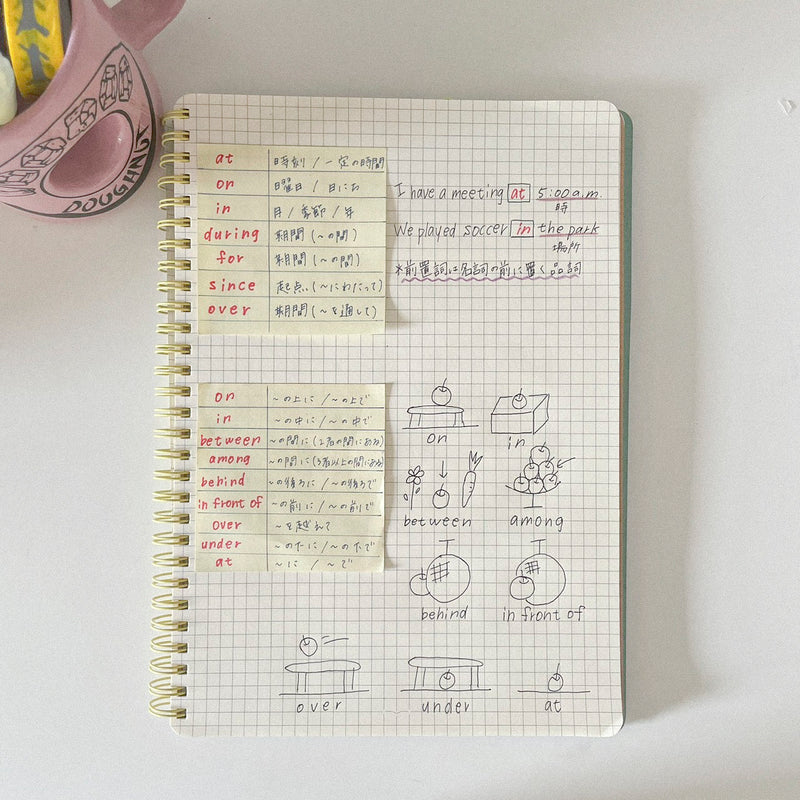 DOUGHNUT
at 時刻 / 一定の時間
on 曜日 / 日にち
in 月 / 季節 / 年
during 期間 (〜の間)
for 期間 (〜の間)
since 起点 (〜にわたって)
over 期間 (〜を通して)
I have a meeting at 5:00 a.m.
時
We played soccer in the park
場所
*前置詞は名詞の前に置く品詞
on 〜の上に / 〜の上で
in 〜の中に / 〜の中で
between 〜の間に (2者の間にある)
among 〜の間に (3者以上の間にある)
behind 〜の後ろに / 〜の後ろで
in front of 〜の前に / 〜の前で
over 〜を越えて
under 〜の下に / 〜の下で
at 〜に / 〜で
on in
between among
behind in front of
over under at